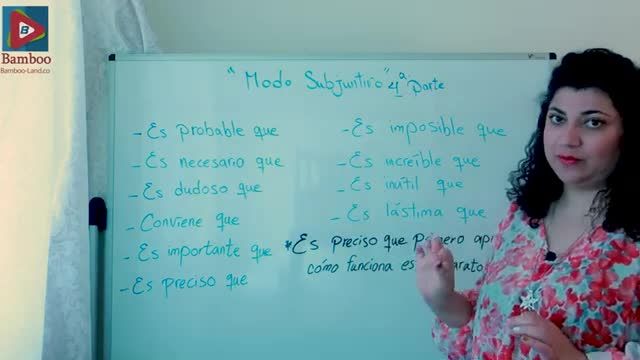 Bamboo
Bamboo-Land.co
"Modo Subjuntivo" 4ª Parte
- Es probable que
- Es necesario que
- Es dudoso que
- Conviene que
- Es importante que
- Es preciso que
- Es imposible que
- Es increíble que
- Es inútil que
- Es lástima que
*Es Preciso que Primero
cómo funciona